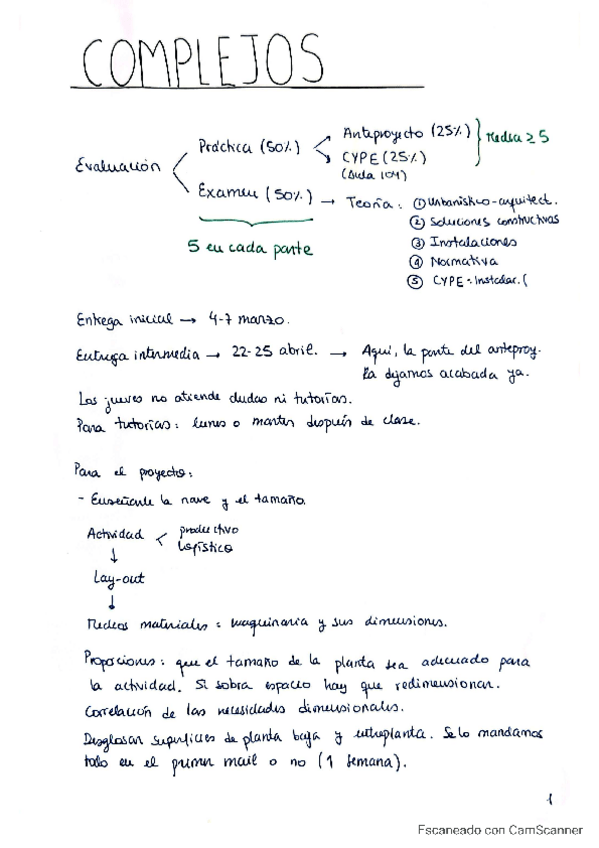 COMPLEJOS
Evaluación
Práctica (50%)
Anteproyecto (25%)
CYPE (25%)
(Aula 104)
Media ≥ 5
Examen (50%) → Teoría: ① Urbanístico-arquitect.
② Soluciones constructivas
③ Instalaciones
④ Normativa
⑤ CYPE: Instalac. (
5 en cada parte
Entrega inicial → 4-7 marzo.
Entrega intermedia → 22-25 abril. → Aquí, la parte del anteproy.
la dejamos acabada ya.
Los jueves no atiende dudas ni tutorías.
Para tutorías: lunes o martes después de clase.
Para el proyecto:
- Enseñarle la nave y el tamaño.
Actividad < productivo
logístico
↓
Lay-out
↓
Medios materiales: maquinaria y sus dimensiones.
Proporciones: que el tamaño de la planta sea adecuado para
la actividad. Si sobra espacio hay que redimensionar.
Correlación de las necesidades dimensionales.
Desglosar superficies de planta baja y entreplanta. Se lo mandamos
todo en el primer mail o no (1 semana).
1
Escaneado con CamScanner